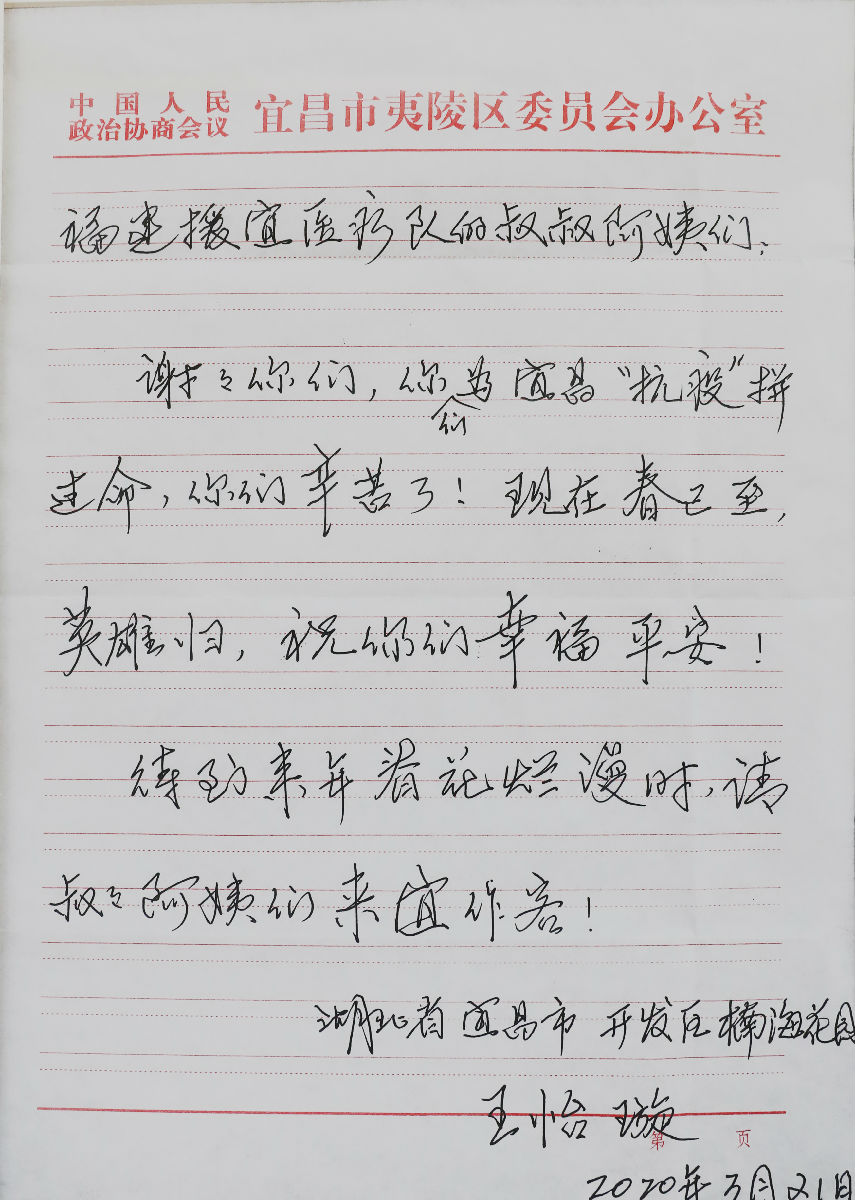 中国人民
政治协商会议 宜昌市夷陵区委员会办公室
福建援宜医疗队的叔叔阿姨们:
谢谢你们，你们为宜昌“抗疫”拼
过命，你们辛苦了！现在春已至，
英雄归，祝你们幸福平安！
待到来年春花烂漫时，请
叔叔阿姨们来宜作客！
湖北省宜昌市 开发区楠海花园
王怡璇
第 页
2020年3月21日